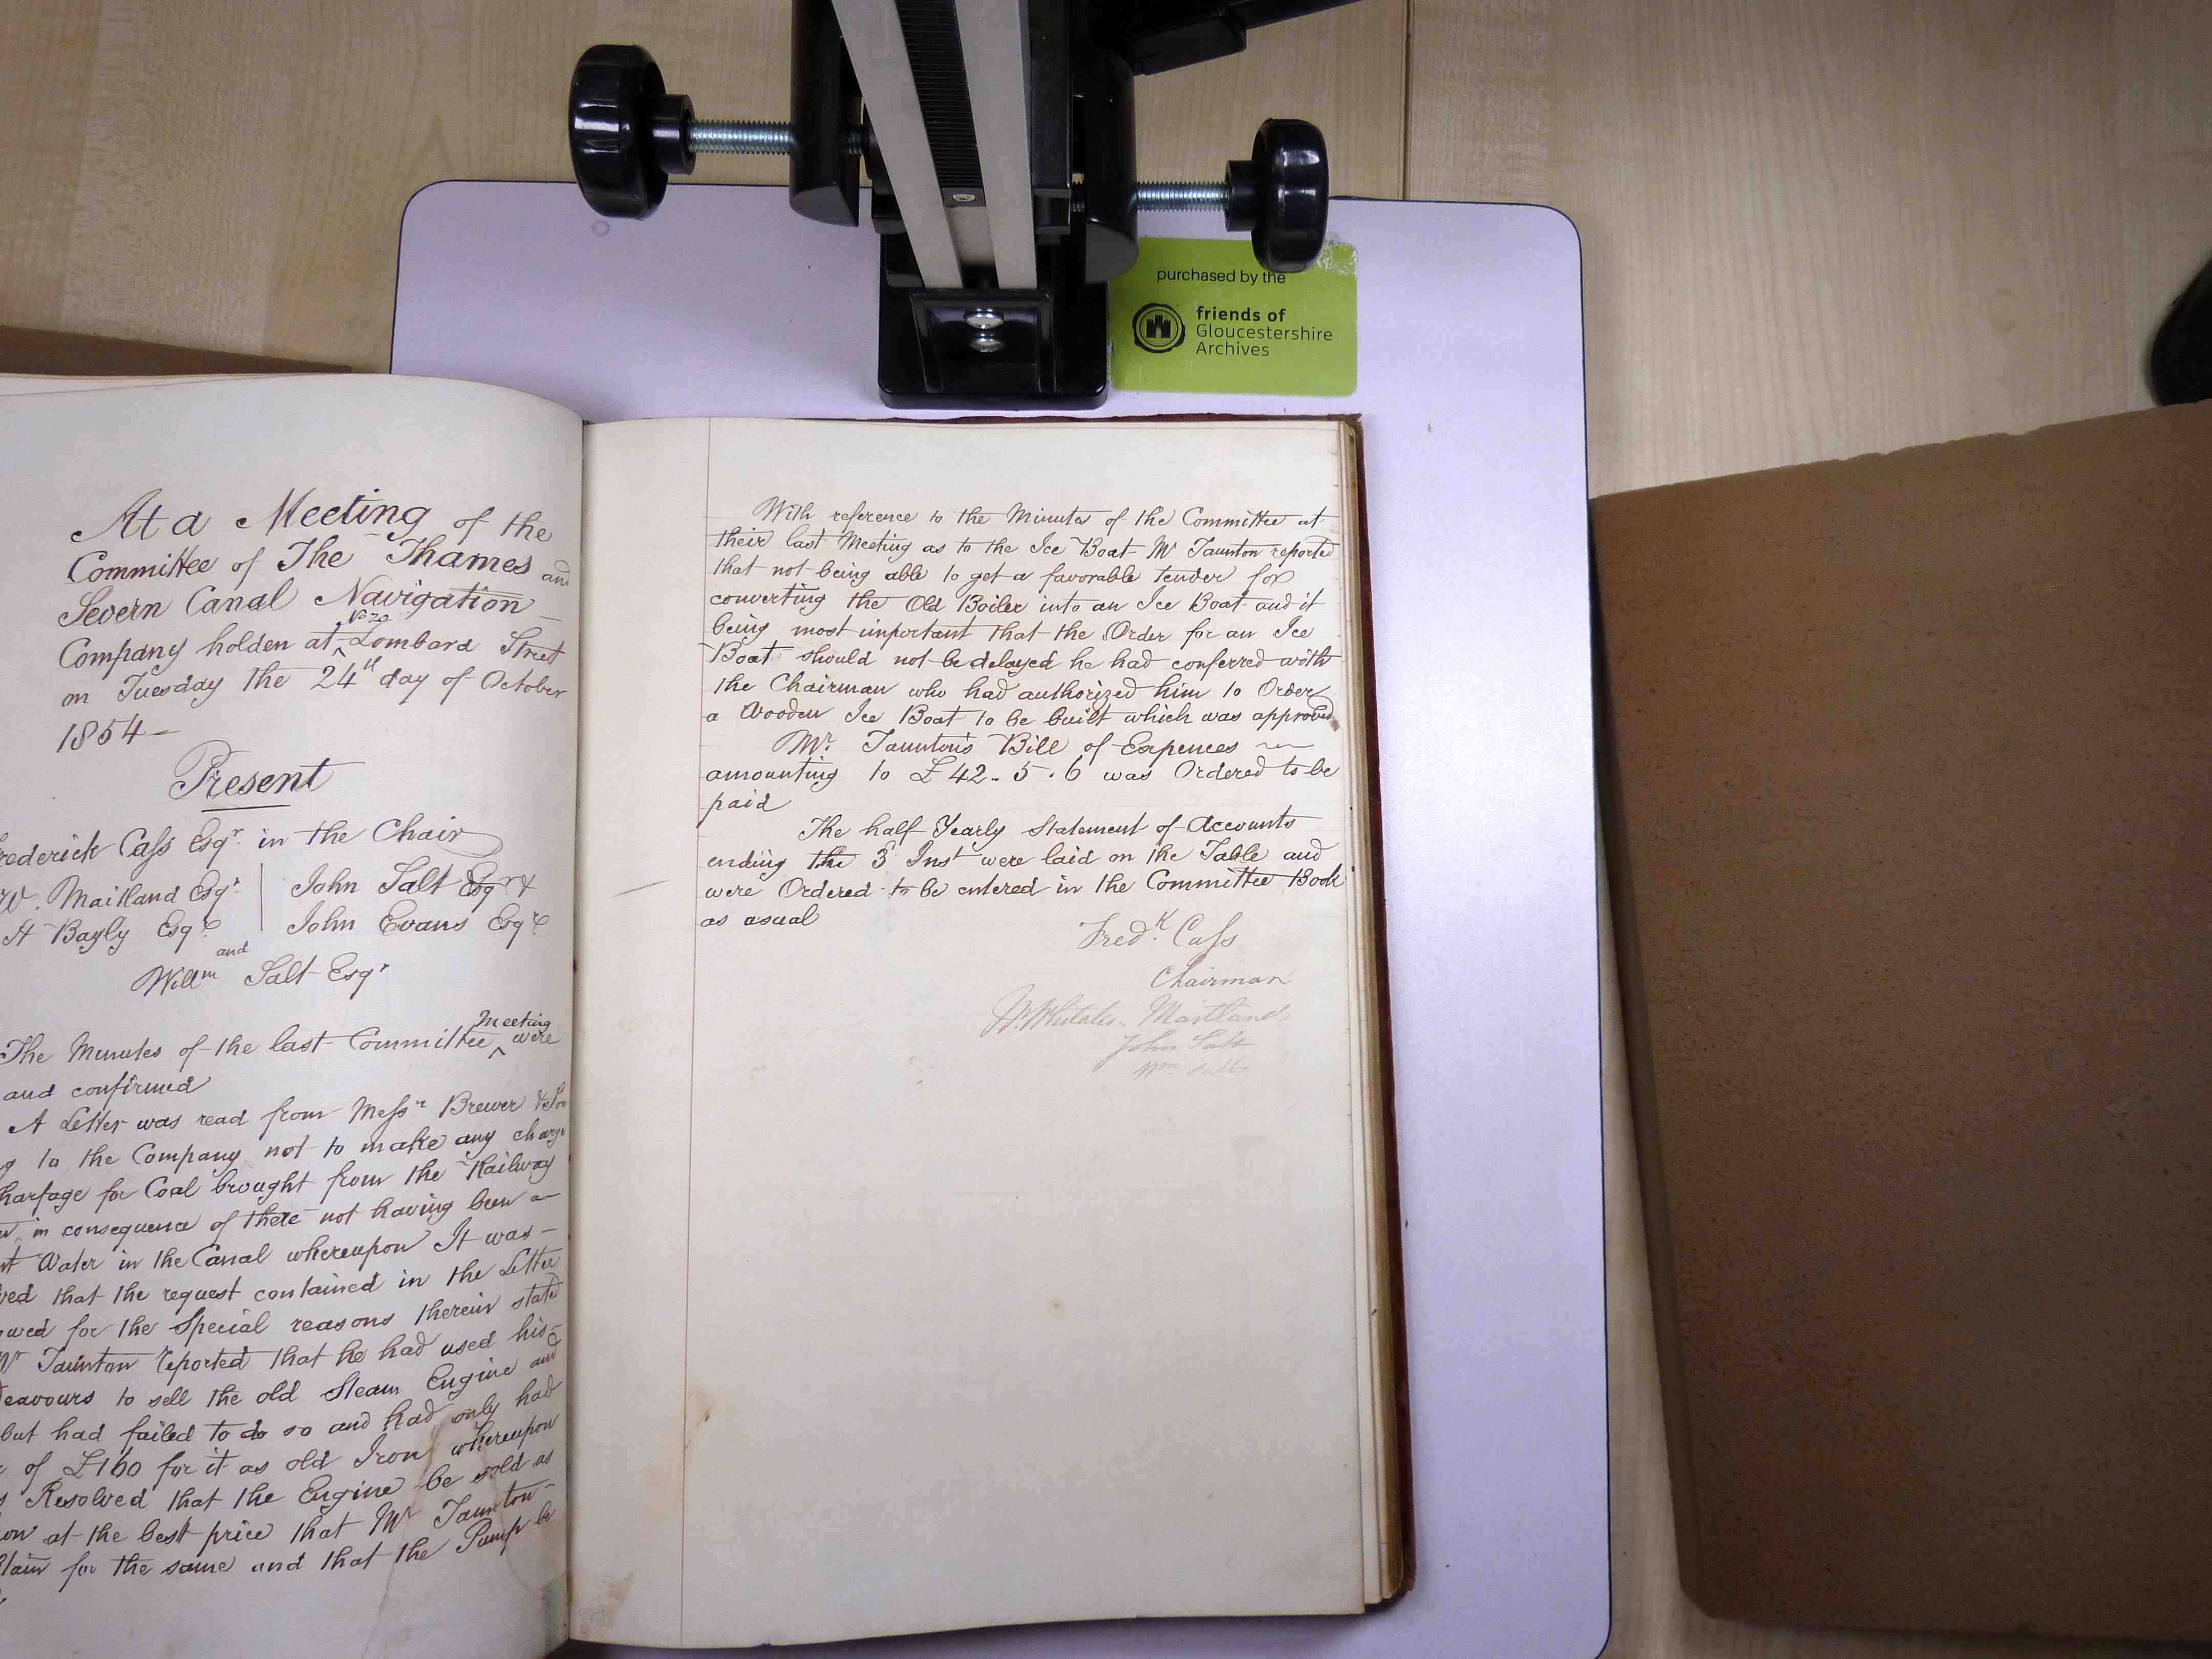 purchased by the
friends of
Gloucestershire
Archives
At a Meeting of the
Committee of The Thames and
Severn Canal Navigation
No 20
Company holden at Lombard Street
on Tuesday the 24th day of October
1854
Present
rederick Cass Esqr. in the Chair
W. Maitland Esqr. John Salt Esqr &
H Bayly Esqre John Evans Esqre
and
Willm Salt Esqr
Meeting
The Minutes of the last Committee were
and confirmed
A Letter was read from Messrs Brewer & Son
g to the Company not to make any charge
harfage for Coal brought from the Railway
in consequence of there not having been a
nt Water in the Canal whereupon It was
ved that the request contained in the Letter
owed for the Special reasons therein stated
Mr Taunton reported that he had used his
deavours to sell the old Steam Engine and
but had failed to do so and had only had
of £160 for it as old Iron whereupon
s Resolved that the Engine be sold as
on at the best price that Mr Taunton
btain for the same and that the Pump be
With reference to the Minutes of the Committee at
their last Meeting as to the Ice Boat Mr Taunton reported
that not being able to get a favorable tender for
converting the Old Boiler into an Ice Boat and it
being most important that the Order for an Ice
Boat should not be delayed he had conferred with
the Chairman who had authorized him to Order
a Wooden Ice Boat to be built which was approved
Mr. Taunton's Bill of Expences
amounting to £42.5.6 was Ordered to be
paid
The half Yearly Statement of Accounts
ending the 3 Inst were laid on the Table and
were Ordered to be entered in the Committee Book
as usual
Fredk. Cass
Chairman
Maitland
John Salt
Wm Salt